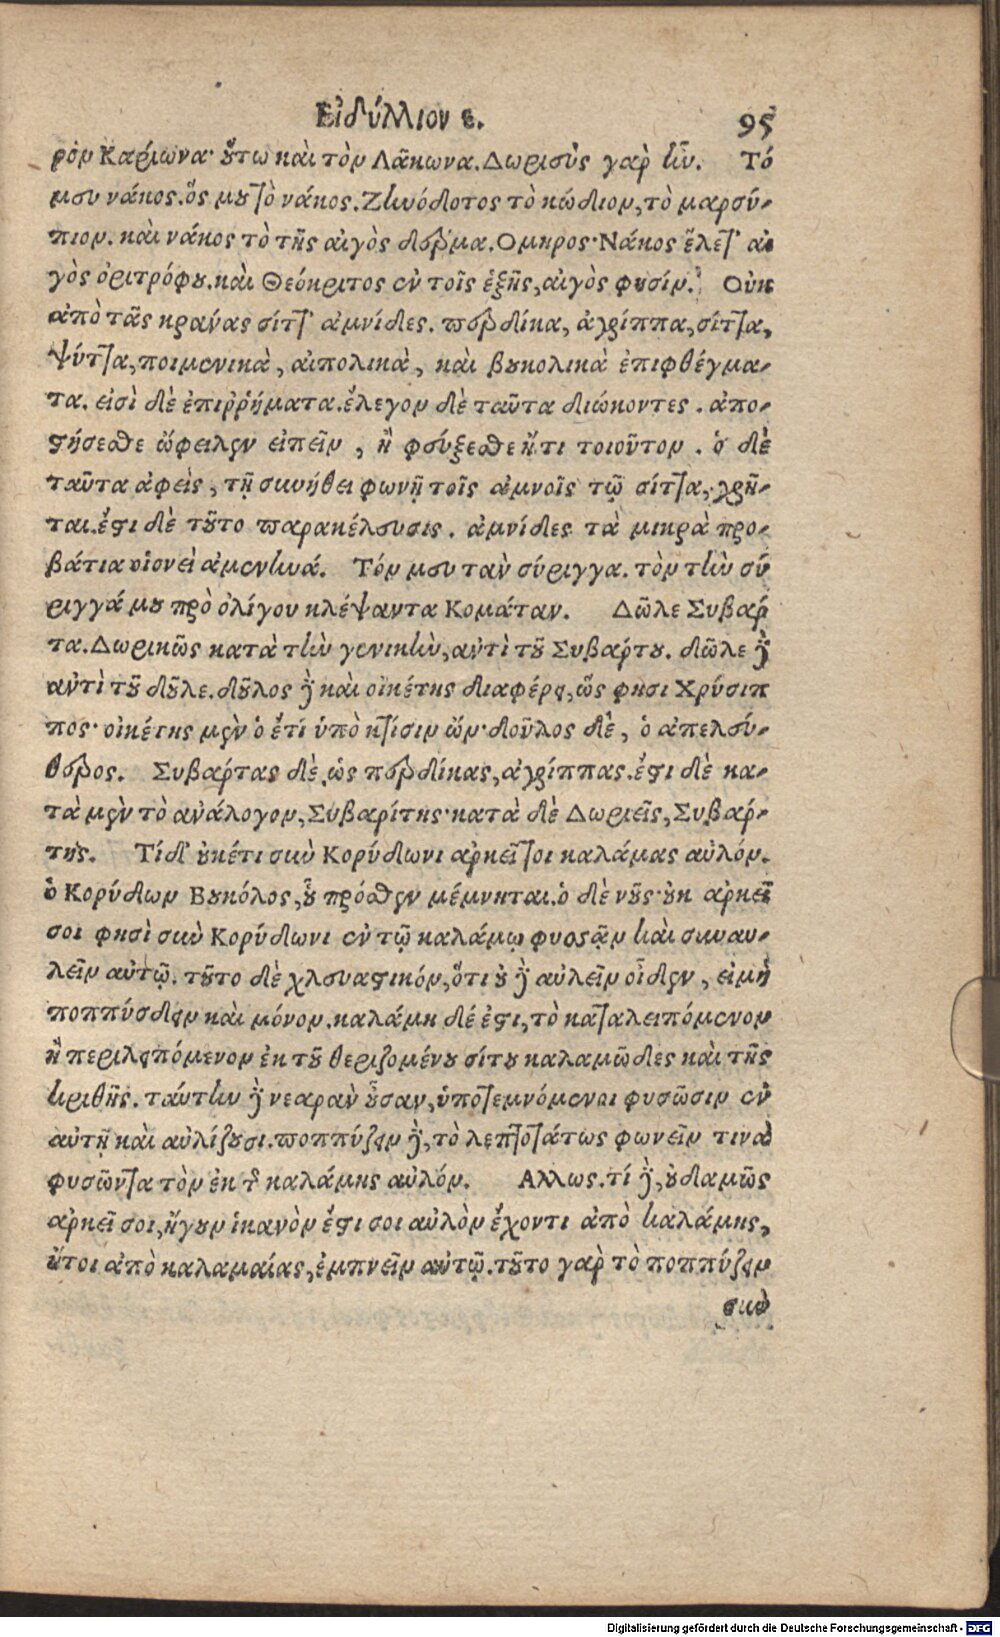 Εἰδύλλιον ε. 95
ρὸν Καρίωνα· οὕτω καὶ τὸν Λάκωνα. Δωριεὺς γὰρ ἦν. Τό
μευ νάκος. ὅς μου τὸ νάκος. Ζηνόδοτος τὸ κώδιον, τὸ μαρσύ-
πιον. καὶ νάκος τὸ τῆς αἰγὸς δέρμα. Ομηρος· Νάκος ἕλετ' αἰ
γὸς ὀριτρόφου. καὶ Θεόκριτος ἐν τοῖς ἑξῆς, αἰγὸς φυσίν. Οὐκ
ἀπὸ τᾶς κράνας σίττ' ἀμνίδες. ψέρδικα, ἀχρίππα, σίττα,
ψύττα, ποιμενικὰ, αἰπολικὰ, καὶ βουκολικὰ ἐπιφθέγμα-
τα. εἰσὶ δὲ ἐπιῤῥήματα. ἔλεγον δὲ ταῦτα διώκοντες. ἀπο-
στήσεσθε ὤφειλεν εἰπεῖν, ἢ φεύξεσθε ἤ τι τοιοῦτον. ὁ δὲ
ταῦτα ἀφεὶς, τῇ συνήθει φωνῇ τοῖς ἀμνοῖς τῷ σίττα, χρῆ-
ται. ἔστι δὲ τοῦτο παρακέλευσις. ἀμνίδες τὰ μικρὰ προ-
βάτια οἱονεὶ ἀμενηνά. Τόν μευ ταν σύριγγα. τὸν τὴν σύ
ριγγά μου πρὸ ὀλίγου κλέψαντα Κομάταν. Δῶλε Συβάρ
τα. Δωρικῶς κατὰ τὴν γενικὴν, ἀντὶ τοῦ Συβάρτου. δῶλε γὰρ
ἀντὶ τοῦ δοῦλε. δοῦλος γὰρ καὶ οἰκέτης διαφέρει, ὥς φησι Χρύσιπ
πος· οἰκέτης μὲν ὁ ἔτι ὑπὸ κτίσιν ὤν· δοῦλος δὲ, ὁ ἀπελεύ-
θερος. Συβάρτας δὲ, ὡς πέρδικας, ἀχρίππας. ἔστι δὲ κα-
τὰ μὲν τὸ ἀνάλογον, Συβαρίτης· κατὰ δὲ Δωριεῖς, Συβάρ-
της. Τίδ' οὐκέτι σὺν Κορύδωνι ἀρκεῖ τοι καλάμας αὐλόν.
ὁ Κορύδων Βουκόλος, οὗ πρόσθεν μέμνηται. ὁ δὲ νῦς· οὐκ ἀρκεῖ
σοι φησὶ σὺν Κορύδωνι ἐν τῷ καλάμῳ φυσᾷν καὶ συναυ-
λεῖν αὐτῷ. τοῦτο δὲ χλευαστικόν, ὅτι οὐ γὰρ αὐλεῖν οἶδεν, εἰμὴ
ποππύσδειν καὶ μόνον. καλάμη δέ ἐστι, τὸ καταλειπόμενον
ἢ περιλειπόμενον ἐκ τοῦ θεριζομένου σίτου καλαμῶδες καὶ τῆς
κριθῆς. ταύτην γὰρ νεαρὰν οὖσαν, ὑποτεμνόμενοι φυσῶσιν ἐν
αὐτῇ καὶ αὐλίζουσι. ποππύζειν γὰρ, τὸ λεπτοτάτως φωνεῖν τινα
φυσῶντα τὸν ἐκ τῆς καλάμης αὐλόν. Αλλως. τί γὰρ, οὐδαμῶς
ἀρκεῖ σοι, ἤγουν ἱκανόν ἐστί σοι αὐλὸν ἔχοντι ἀπὸ καλάμης,
ἤτοι ἀπὸ καλαμαίας, ἐμπνεῖν αὐτῷ. τοῦτο γὰρ τὸ ποππύζειν
σὺν
Digitalisierung gefördert durch die Deutsche Forschungsgemeinschaft - DFG